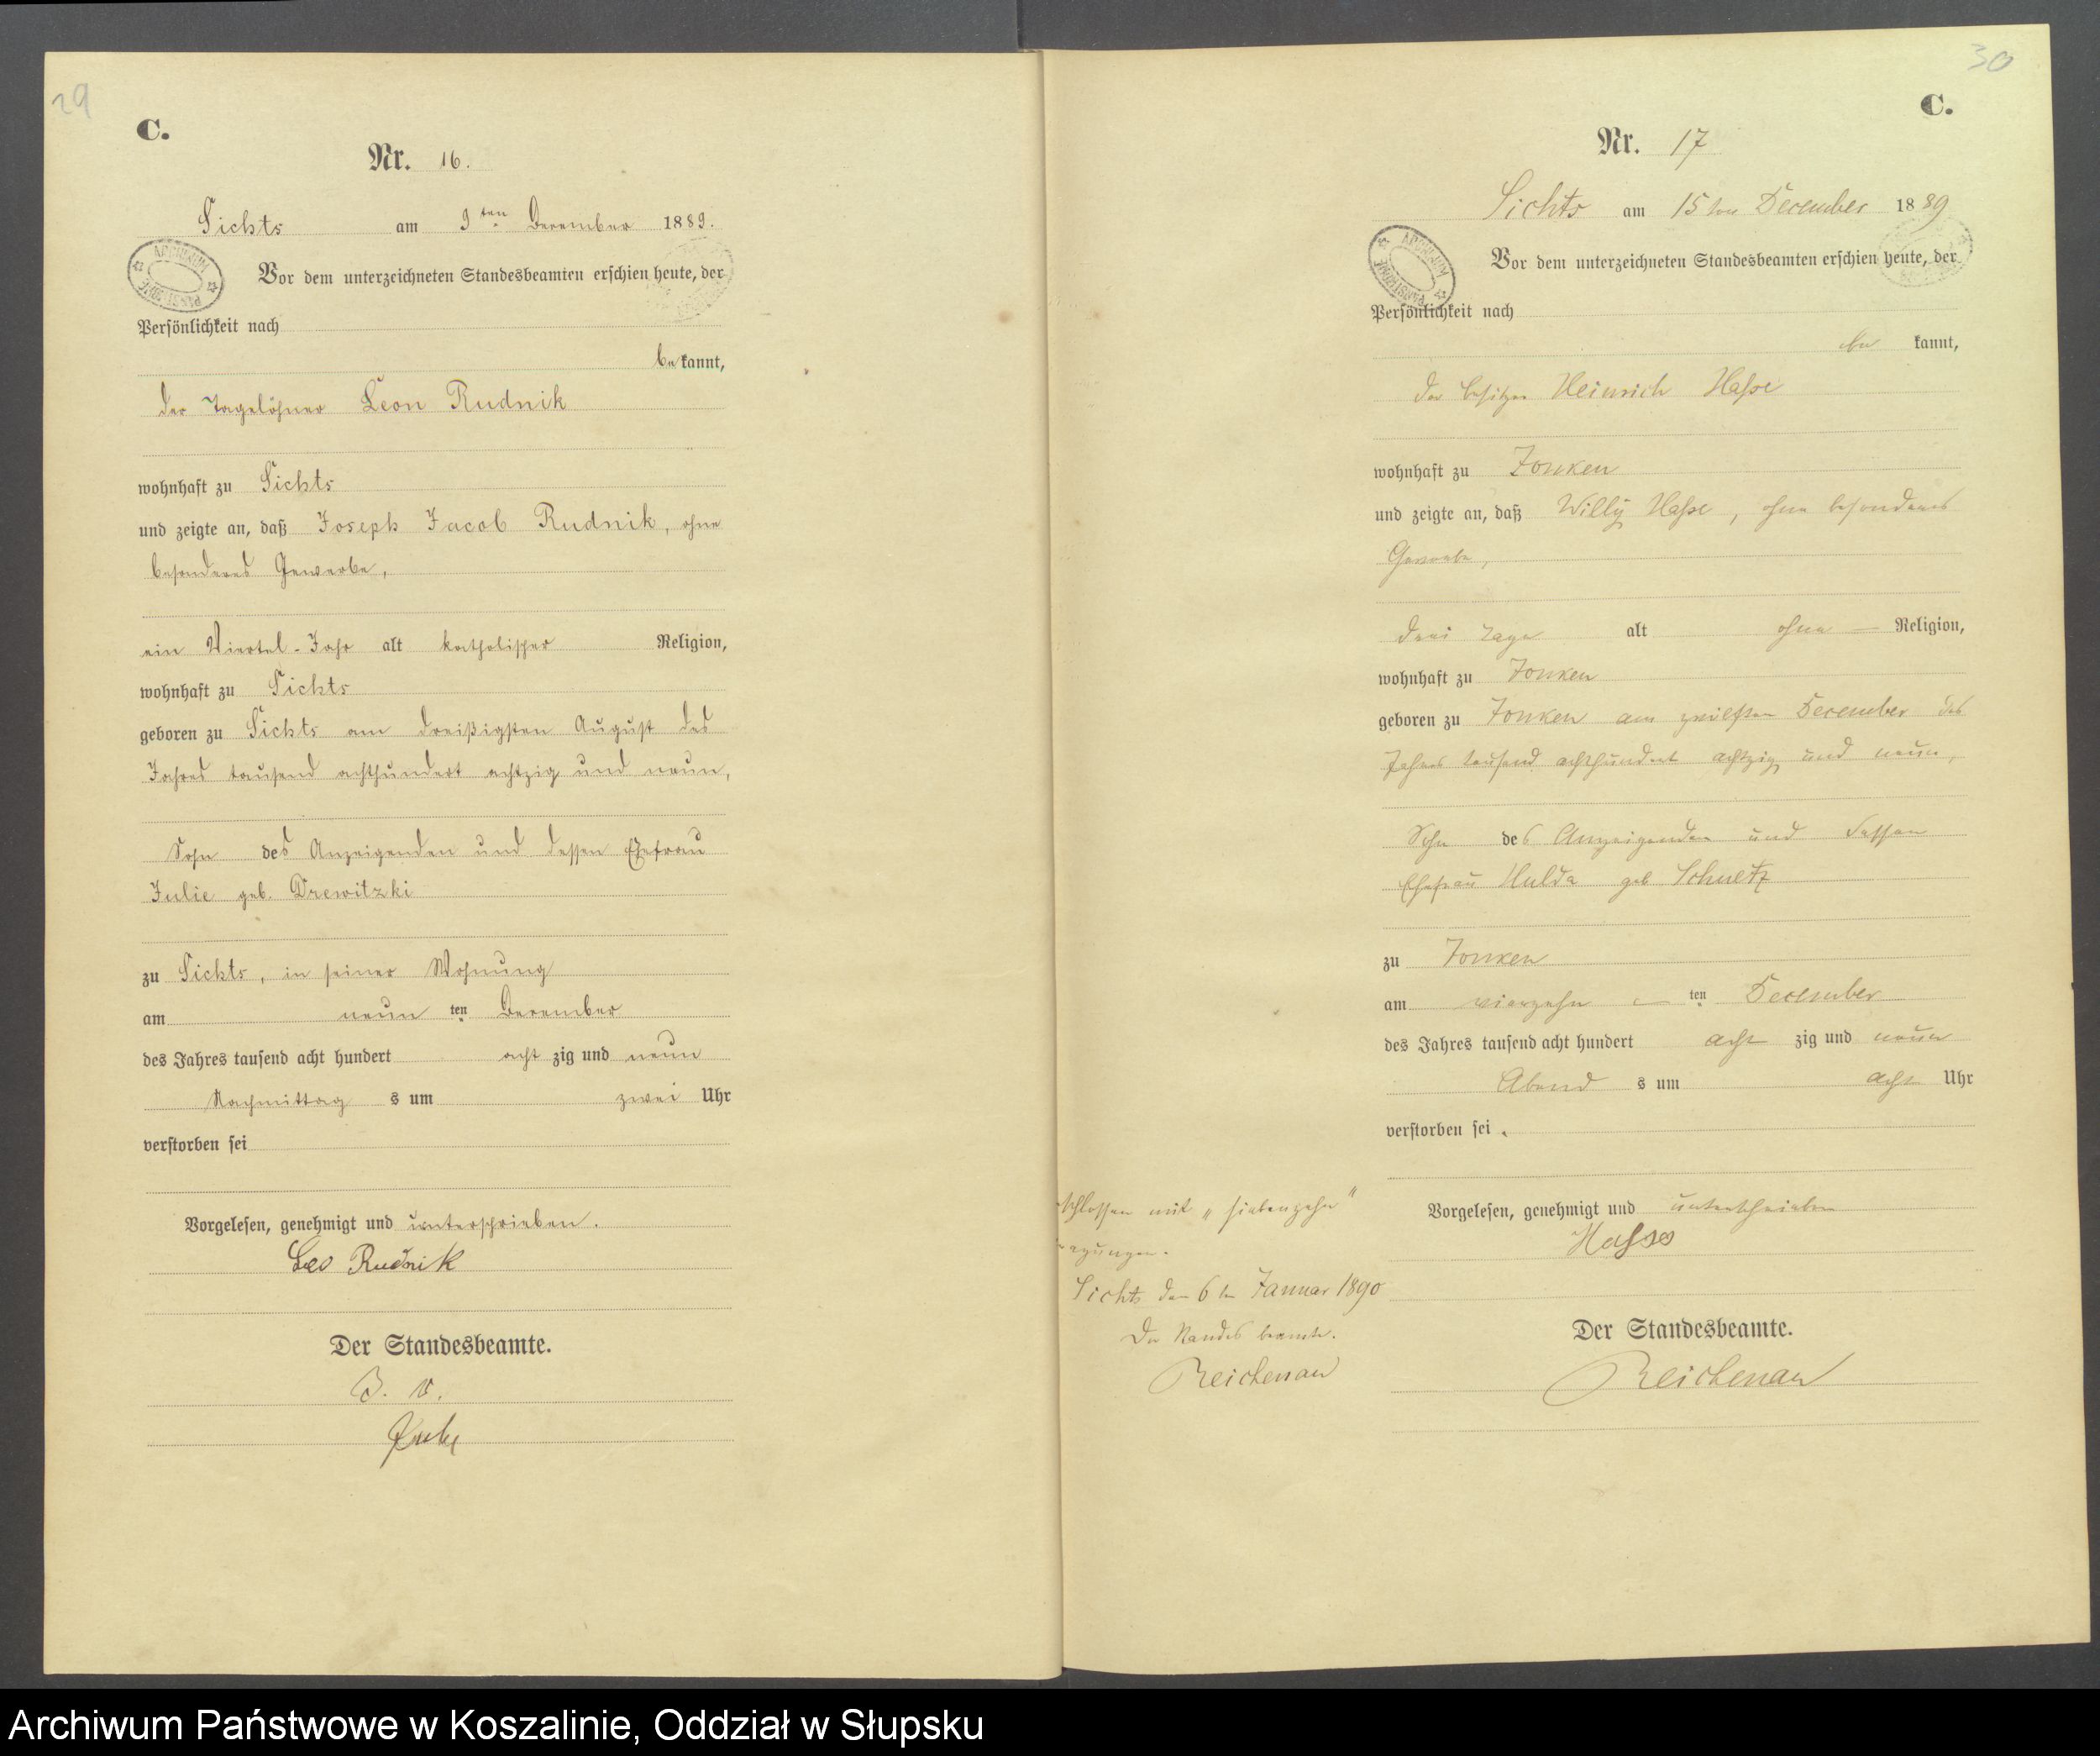 29
C.
Nr. 16.
Sichts am 9ten December 1889.
Vor dem unterzeichneten Standesbeamten erschien heute, der
Persönlichkeit nach
bekannt,
der Tagelöhner Leon Rudnik
wohnhaft zu Sichts
und zeigte an, daß Joseph Jacob Rudnik, ohne
besonderes Gewerbe,
ein Viertel-Jahr alt katholischer Religion,
wohnhaft zu Sichts
geboren zu Sichts am dreißigsten August des
Jahres tausend achthundert achtzig und neun,
Sohn des Anzeigenden und dessen Ehefrau
Julie geb. Drewitzki
zu Sichts, in seiner Wohnung
am neun ten December
des Jahres tausend acht hundert acht zig und neun
Nachmittag s um zwei Uhr
verstorben sei
Vorgelesen, genehmigt und unterschrieben.
Leo Rudnik
Der Standesbeamte.
J. V.
30
C.
Nr. 17
Sichts am 15ten December 1889
Vor dem unterzeichneten Standesbeamten erschien heute, der
Persönlichkeit nach
be kannt,
der Besitzer Heinrich Hasse
wohnhaft zu Jonken
und zeigte an, daß Willy Hasse, ohne besonderes
Gewerbe,
drei Tage alt ohne — Religion,
wohnhaft zu Jonken
geboren zu Jonken am zwölften December des
Jahres tausend achthundert achtzig und neun,
Sohn des Anzeigenden und dessen
Ehefrau Hulda geb Schuetz
zu Jonken
am vierzehn — ten December
des Jahres tausend acht hundert acht zig und neun
Abend s um acht Uhr
verstorben sei.
Vorgelesen, genehmigt und unterschrieben
Hasse
Der Standesbeamte.
Reichenau
schlossen mit „siebenzehn"
agungen.
Sichts den 6ten Januar 1890
Der Standesbeamte.
Reichenau
ARCHIWUM PAŃSTWOWE
ARCHIWUM PAŃSTWOWE
Archiwum Państwowe w Koszalinie, Oddział w Słupsku